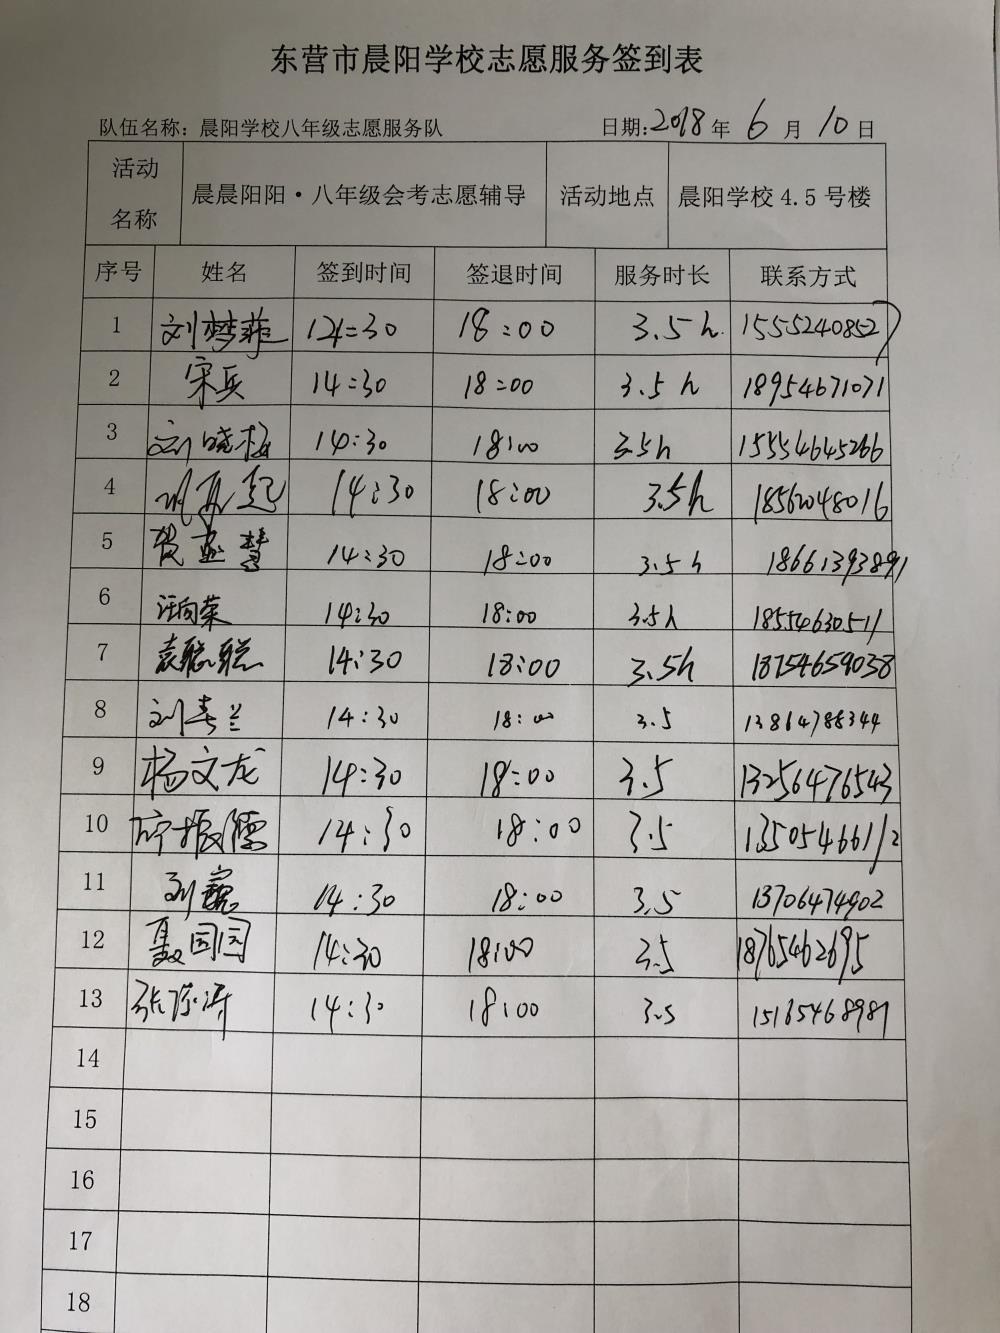 东营市晨阳学校志愿服务签到表
队伍名称：晨阳学校八年级志愿服务队 日期：2018年 6 月 10 日
活动名称 晨晨阳阳·八年级会考志愿辅导 活动地点 晨阳学校 4.5 号楼
序号 姓名 签到时间 签退时间 服务时长 联系方式
1 刘梦菲 14:30 18:00 3.5h 15552408527
2 宋兵 14:30 18:00 3.5h 18954671071
3 刘晓梅 14:30 18:00 3.5h 15554645266
4 14:30 18:00 3.5h 18562048016
5 贺 慧 14:30 18:00 3.5h 18661393891
6 汪向荣 14:30 18:00 3.5h 18554630511
7 袁聪聪 14:30 18:00 3.5h 18754659038
8 刘春兰 14:30 18:00 3.5 13864788344
9 杨文龙 14:30 18:00 3.5 13256476543
10 振儒 14:30 18:00 3.5 13505466112
11 刘巍 14:30 18:00 3.5 13706474902
12 聂园园 14:30 18:00 3.5 18765462695
13 张 涛 14:30 18:00 3.5 15165468981
14
15
16
17
18